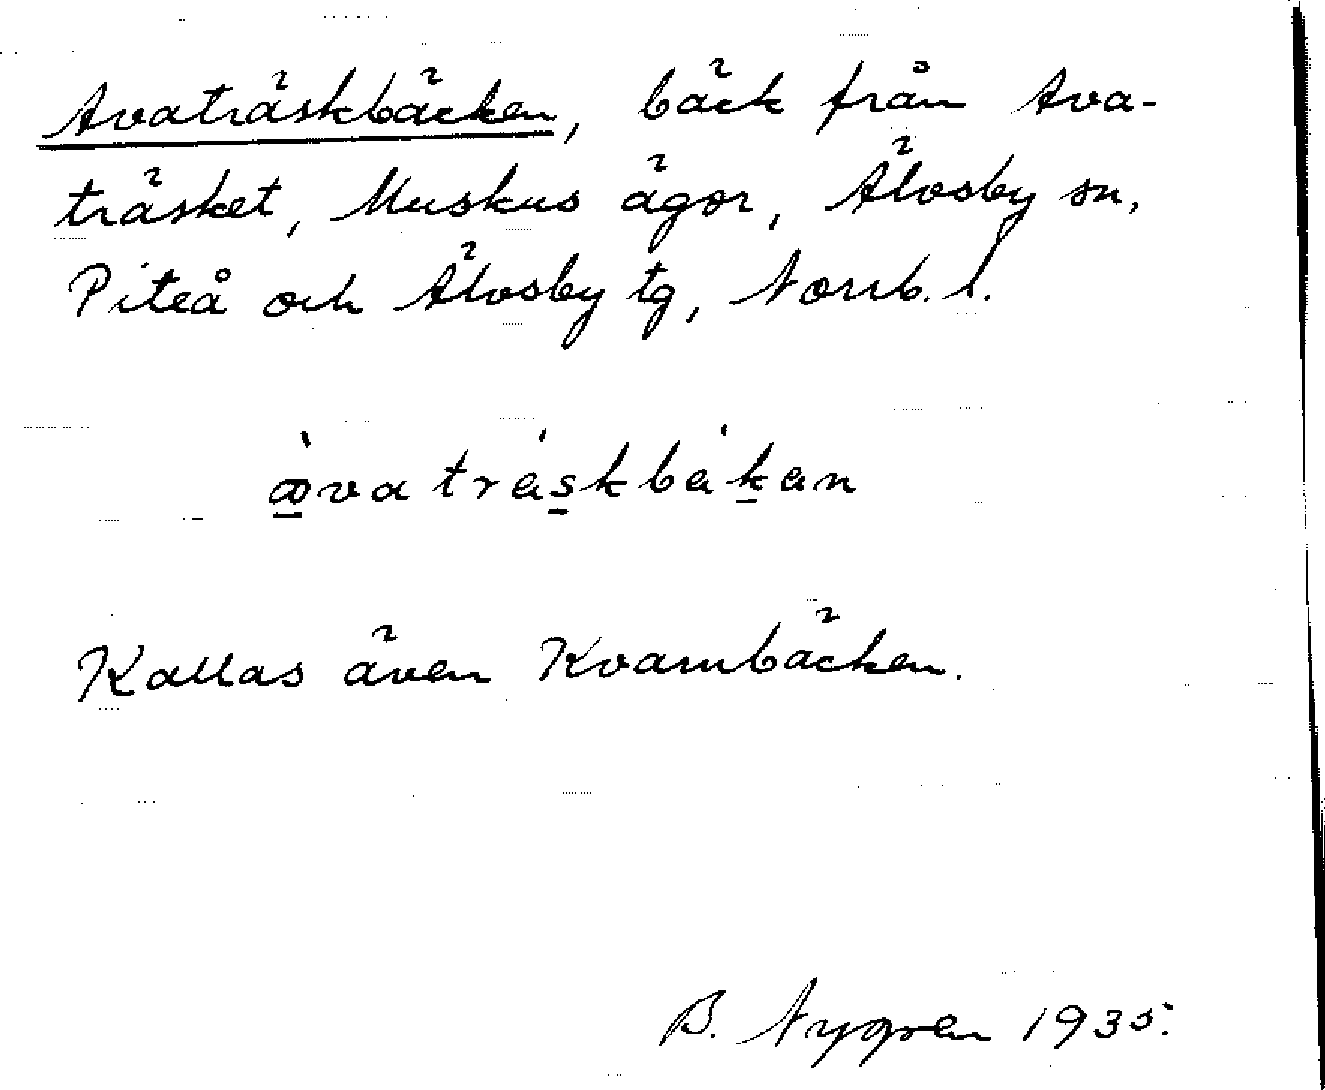 Avaträskbäcken, bäck från Ava-
träsket, Muskus ägor, Älvsby sn,
Piteå och Älvsby tg, Norrb. l.
a̱vatrας̱kbαḵαn
Kallas även Kvarnbäcken.
B. Nygren 1935.